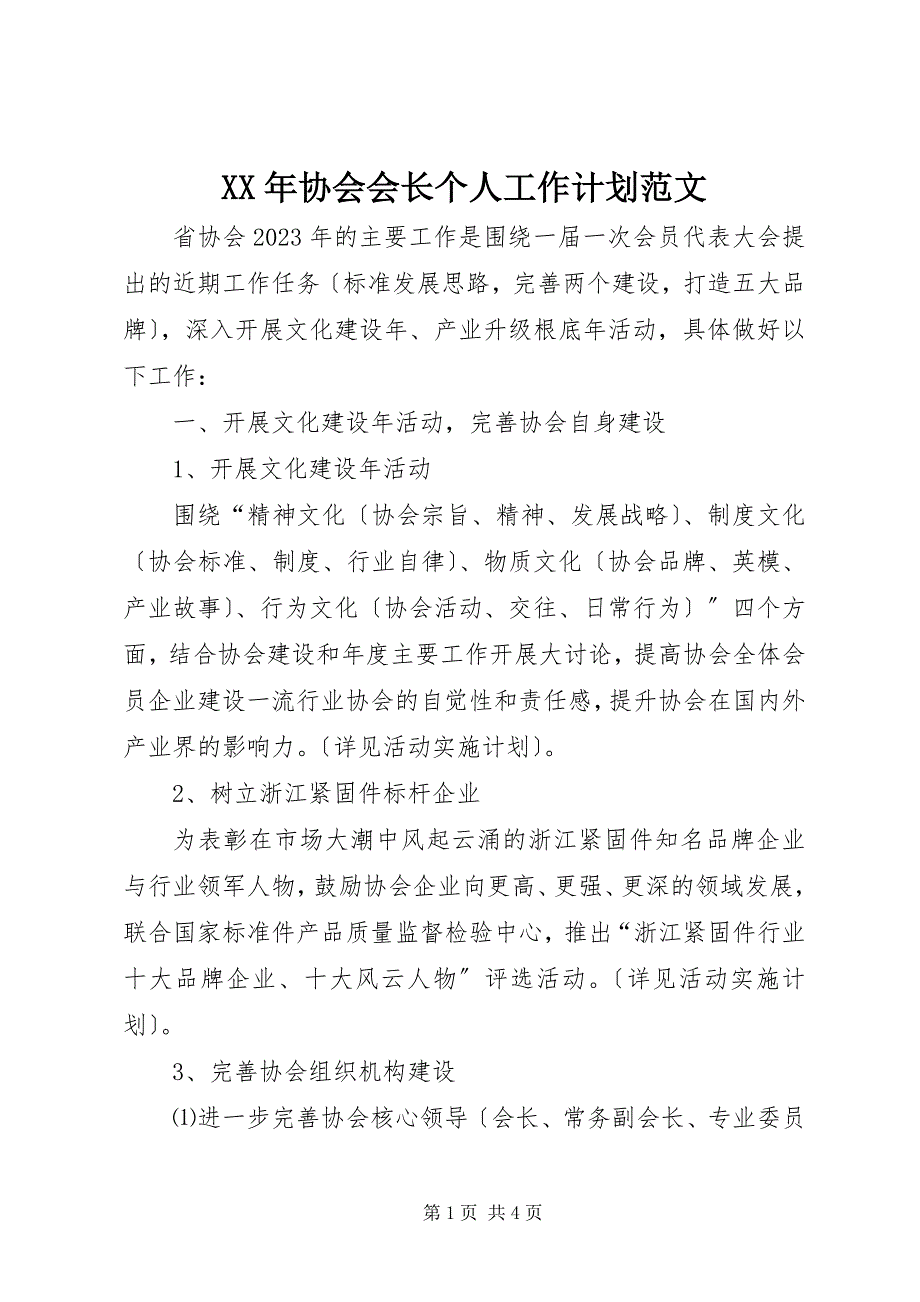 XX 年协会会长个人工作计划范文
省协会 2023 年的主要工作是围绕一届一次会员代表大会提
出的近期工作任务〔标准发展思路，完善两个建设，打造五大品
牌〕，深入开展文化建设年、产业升级根底年活动，具体做好以
下工作：
一、开展文化建设年活动，完善协会自身建设
1、开展文化建设年活动
围绕“精神文化〔协会宗旨、精神、发展战略〕、制度文化
〔协会标准、制度、行业自律〕、物质文化〔协会品牌、英模、
产业故事〕、行为文化〔协会活动、交往、日常行为〕〞四个方
面，结合协会建设和年度主要工作开展大讨论，提高协会全体会
员企业建设一流行业协会的自觉性和责任感，提升协会在国内外
产业界的影响力。〔详见活动实施计划〕。
2、树立浙江紧固件标杆企业
为表彰在市场大潮中风起云涌的浙江紧固件知名品牌企业
与行业领军人物，鼓励协会企业向更高、更强、更深的领域发展，
联合国家标准件产品质量监督检验中心，推出“浙江紧固件行业
十大品牌企业、十大风云人物〞评选活动。〔详见活动实施计
划〕。
3、完善协会组织机构建设
⑴进一步完善协会核心领导〔会长、常务副会长、专业委员
第 1 页 共 4 页